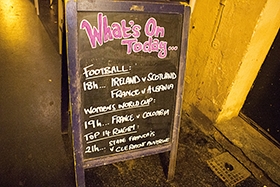 What's On
Today...
FOOTBALL:
18h... IRELAND v SCOTLAND
FRANCE v ALBANIA
WOMENS WORLD CUP:
19h... FRANCE v COLOMBIA
TOP 14 RUGBY:
STADE FRANCAIS
21h... v CLERMONT AUVERGNE